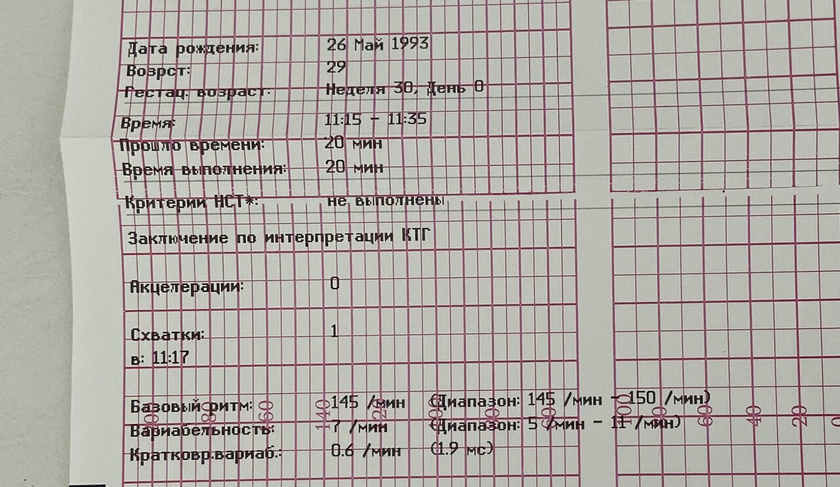 Дата рождения: 26 Май 1993
Возрст: 29
Гестац. возраст: Неделя 30, День 0
Время: 11:15 - 11:35
Прошло времени: 20 мин
Время выполнения: 20 мин
Критерии НСТ*: не выполнены
Заключение по интерпретации КТГ
Акцелерации: 0
Схватки: 1
в: 11:17
Базовый ритм: 145 /мин (Диапазон: 145 /мин - 150 /мин)
Вариабельность: 7 /мин (Диапазон: 5 /мин - 11 /мин)
Кратковр.вариаб.: 0.6 /мин (1.9 мс)
60 140 100 60 40 20 0